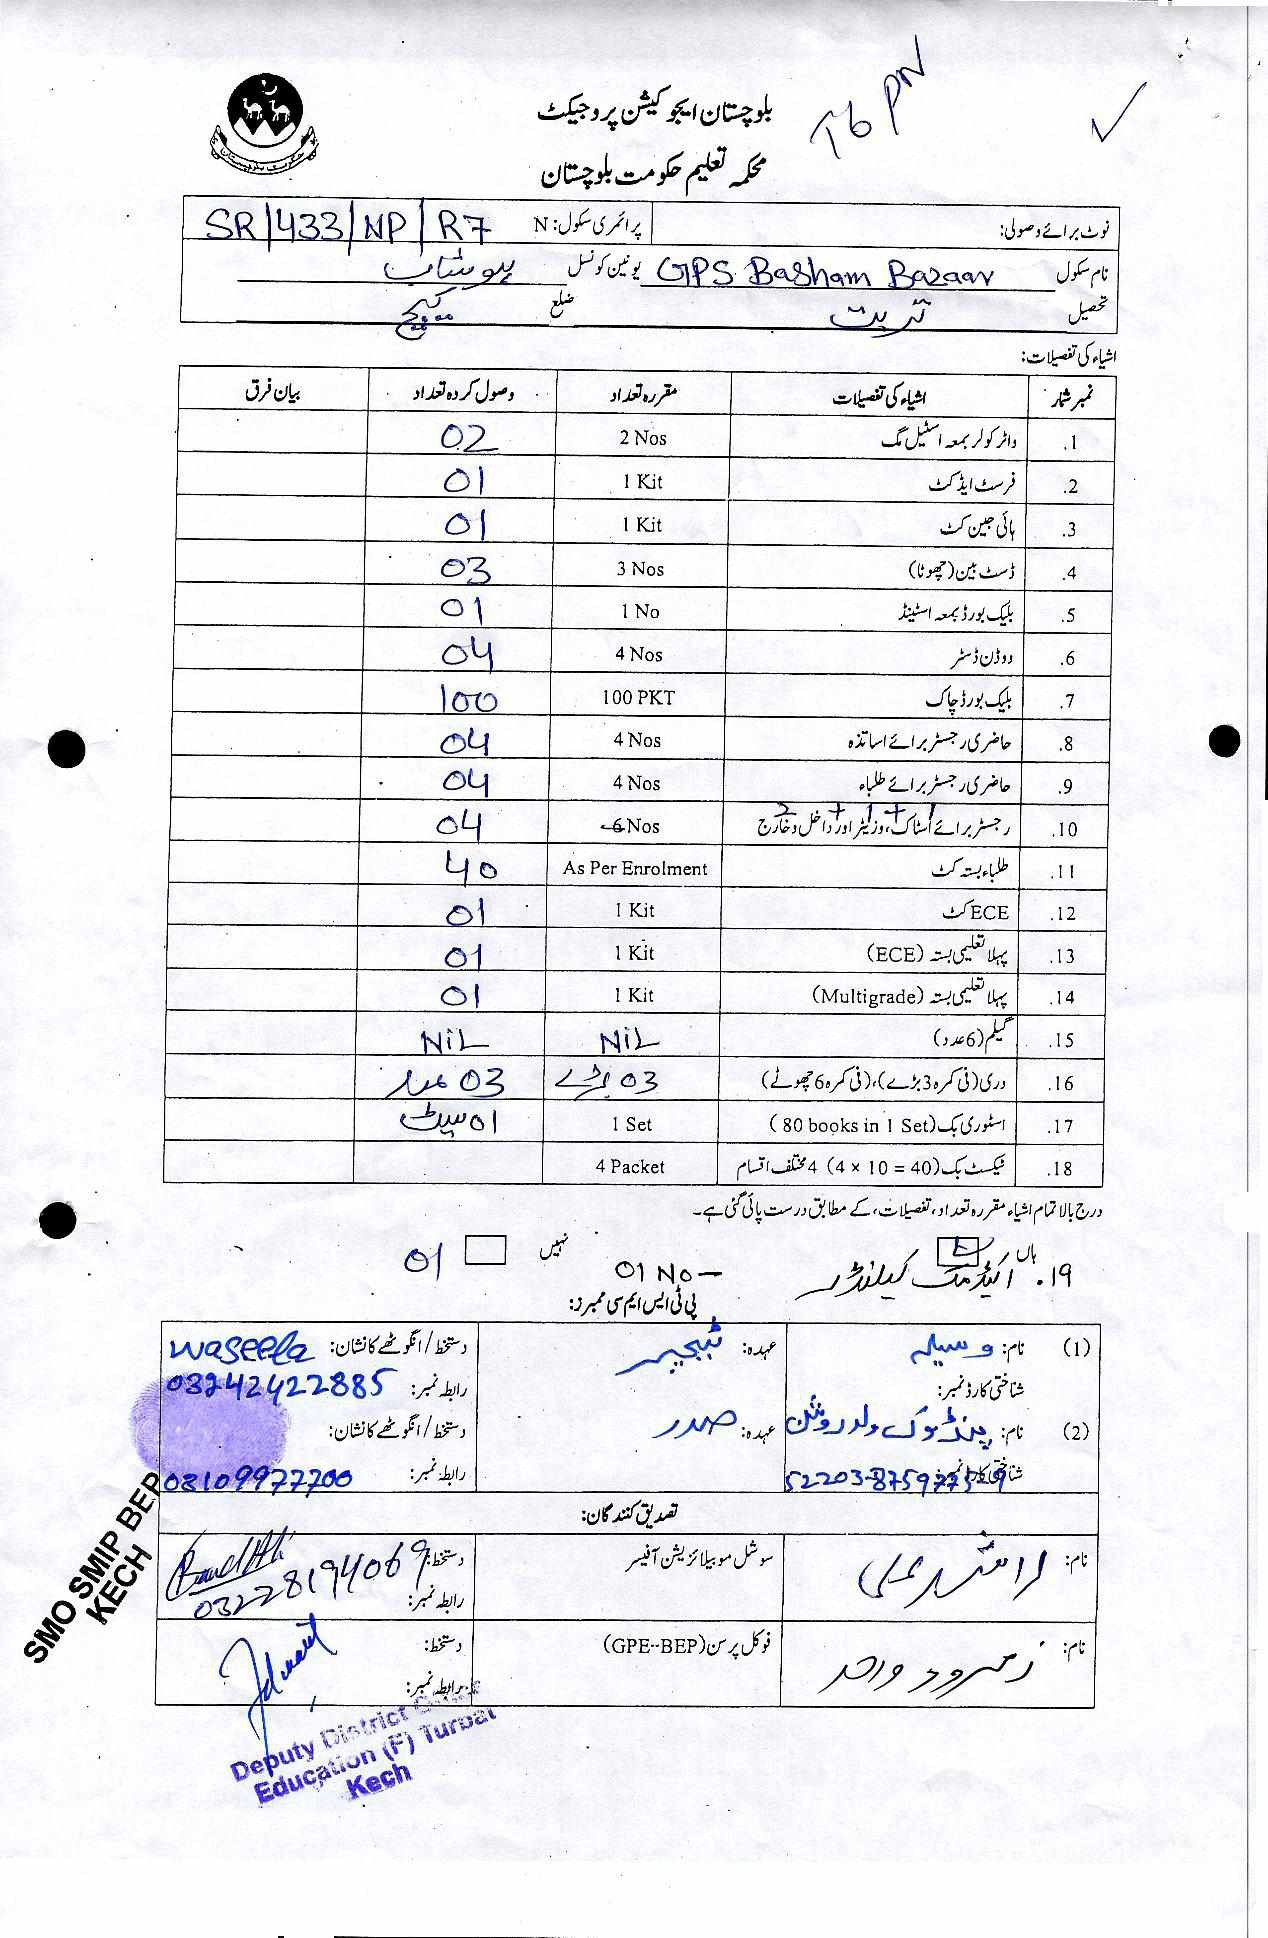 بلوچستان ایجوکیشن پروجیکٹ
محکمہ تعلیم حکومت بلوچستان
نوٹ برائے وصولی: پرائمری سکول: N SR/433/NP/R7
نام سکول GPS Basham Bazaar یونین کونسل
تحصیل تربت ضلع کیچ
اشیاء کی تفصیلات:
نمبر شمار اشیاء کی تفصیلات مقررہ تعداد وصول کردہ تعداد بیان فرق
1. واٹر کولر بمعہ اسٹیل مگ 2 Nos 02
2. فرسٹ ایڈ کٹ 1 Kit 01
3. ہائی جین کٹ 1 Kit 01
4. ڈسٹ بین (چھوٹا) 3 Nos 03
5. بلیک بورڈ بمعہ اسٹینڈ 1 No 01
6. ووڈن ڈسٹر 4 Nos 04
7. بلیک بورڈ چاک 100 PKT 100
8. حاضری رجسٹر برائے اساتذہ 4 Nos 04
9. حاضری رجسٹر برائے طلباء 4 Nos 04
10. رجسٹر برائے اسٹاک، وزیٹر اور داخل و خارج 6 Nos 04
11. طلباء بستہ کٹ As Per Enrolment 40
12. ECE کٹ 1 Kit 01
13. پہلا تعلیمی بستہ (ECE) 1 Kit 01
14. پہلا تعلیمی بستہ (Multigrade) 1 Kit 01
15. گیلم (6 عدد) NIL NIL
16. دری (فی کمرہ 3 بڑے)، (فی کمرہ 6 چھوٹے) 03 بڑے 03 عدد
17. اسٹوری بک (80 books in 1 Set) 1 Set 01 سیٹ
18. ٹیکسٹ بک (4 × 10 = 40) 4 مختلف اقسام 4 Packet
درج بالا تمام اشیاء مقررہ تعداد، تفصیلات، کے مطابق درست پائی گئی ہے۔
ہاں نہیں
۱۹. اکیڈمک کیلنڈر 01 No 01
پی ٹی ایس ایم سی ممبرز:
(1) نام: وسیلہ عہدہ: ٹیچر دستخط/انگوٹھے کا نشان: waseela
شناختی کارڈ نمبر: رابطہ نمبر: 03242422885
(2) نام: عہدہ: صدر دستخط/انگوٹھے کا نشان:
شناختی کارڈ نمبر: رابطہ نمبر: 08109977200
تصدیق کنندگان:
نام: سوشل موبیلائزیشن آفیسر دستخط:
رابطہ نمبر: 03228194069
نام: فوکل پرسن (GPE--BEP) دستخط:
رابطہ نمبر:
SMO SMIP BEP
KECH
Deputy District
Education (F) Turbat
Kech